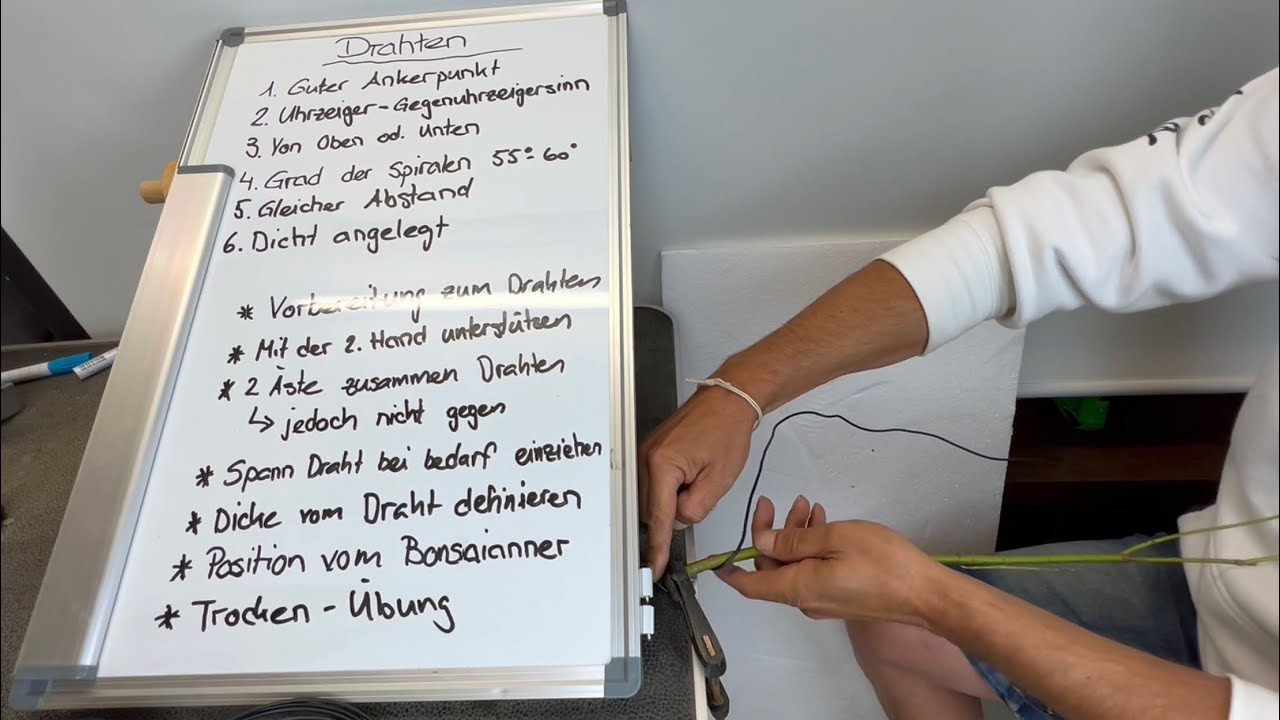 Drahten
1. Guter Ankerpunkt
2. Uhrzeiger-Gegenuhrzeigersinn
3. Von Oben od. Unten
4. Grad der Spiralen 55°-60°
5. Gleicher Abstand
6. Dicht angelegt
* Vorbereitung zum Drahten
* Mit der 2. Hand unterstützen
* 2 Äste zusammen Drahten
↳ jedoch nicht gegen
* Spann Draht bei bedarf einziehen
* Dicke vom Draht definieren
* Position vom Bonsaianner
* Trocken-Übung